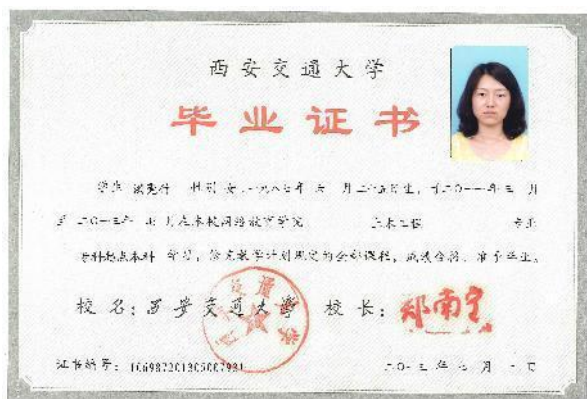 西安交通大学
毕业证书
学生 性别 女 一九八七年 月二十五日生，于二〇一一年三月
至 二〇一三年 月在本校网络教育学院 土木工程 专业
专科起点本科 学习，修完教学计划规定的全部课程，成绩合格，准予毕业。
校名：西安交通大学 校长：郑南宁
证书编号：
二〇一三年七月 日